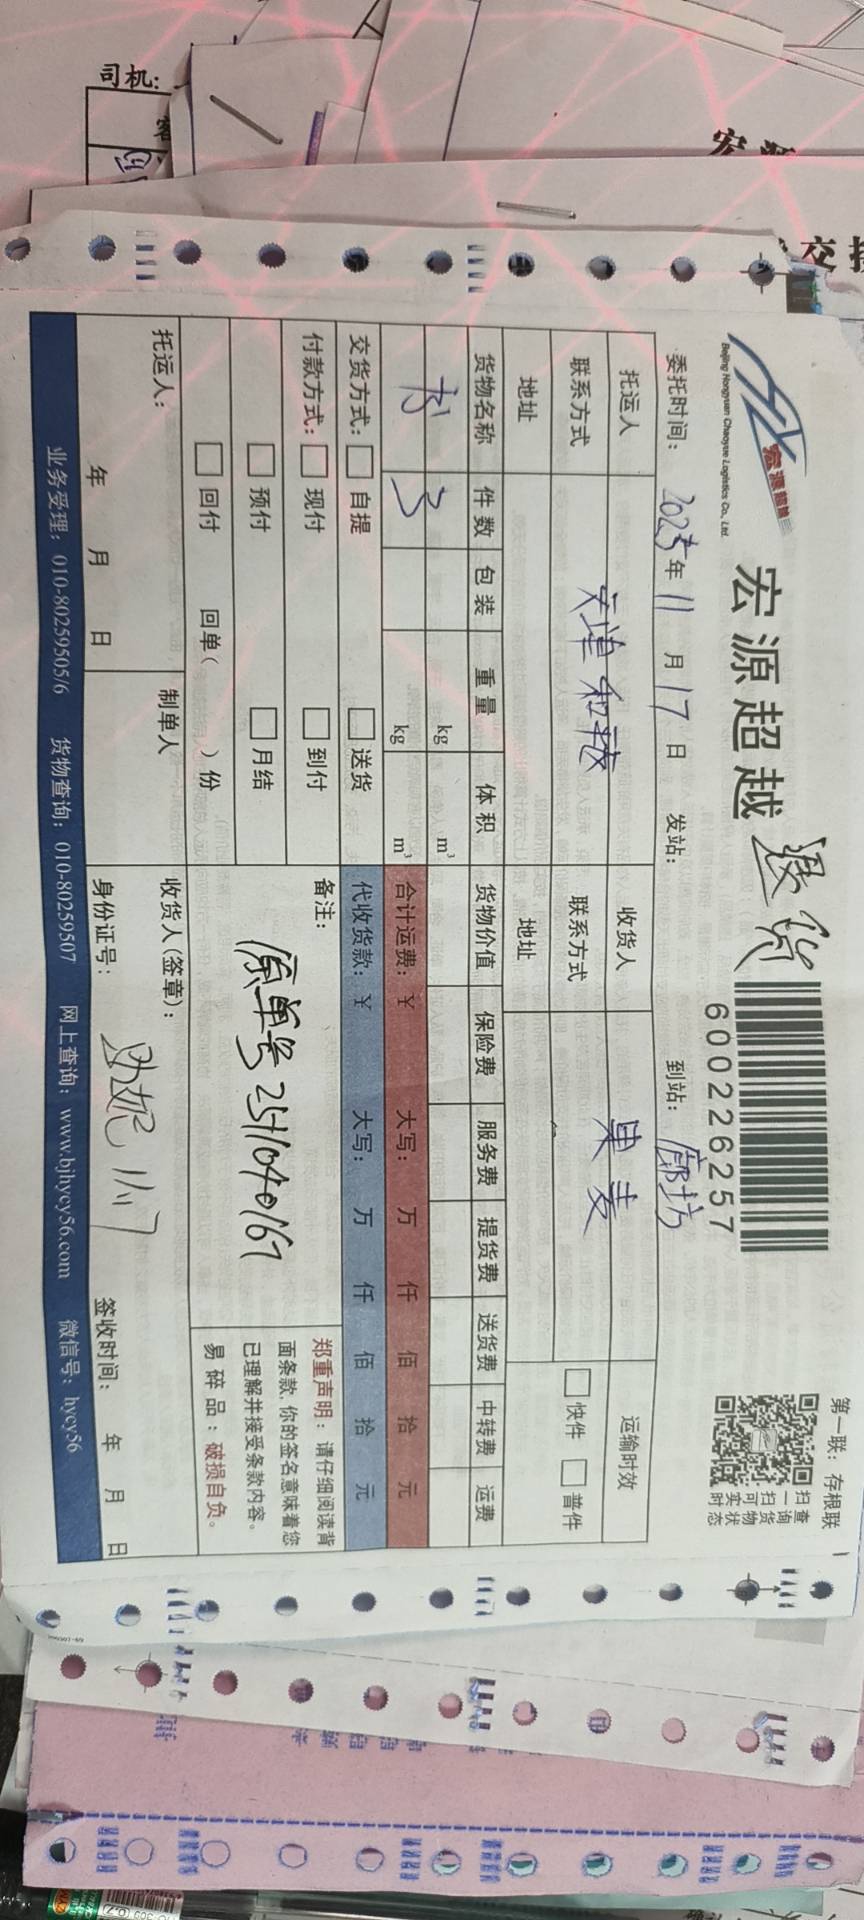 司机:
宏源
交接
宏源超越
Beijing Hongyuan Chaoyue Logistics Co., Ltd.
宏源超越 退货
600226257
第一联：存根联
扫一扫 查询货物 可实时状态
委托时间： 2025年 11 月 17 日 发站： 到站： 廊坊
托运人 天津和硕 收货人 果麦 运输时效
联系方式 联系方式 快件 普件
地址 地址
货物名称 件数 包装 重量 体积 货物价值 保险费 服务费 提货费 送货费 中转费 运费
kg m³
书 3 kg m³ 合计运费：￥ 大写： 万 仟 佰 拾 元
交货方式： 自提 送货 代收货款：￥ 大写： 万 仟 佰 拾 元
付款方式： 现付 到付
预付 月结
回付 回单( )份
备注：
原单号 2511040167
郑重声明：请仔细阅读背
面条款，你的签名意味着您
已理解并接受条款内容。
易碎品：破损自负。
托运人： 制单人 收货人(签章)：
年 月 日 身份证号： 签收时间： 年 月 日
业务受理：010-80259505/6 货物查询：010-80259507 网上查询：www.bjhycy56.com 微信号：hycy56